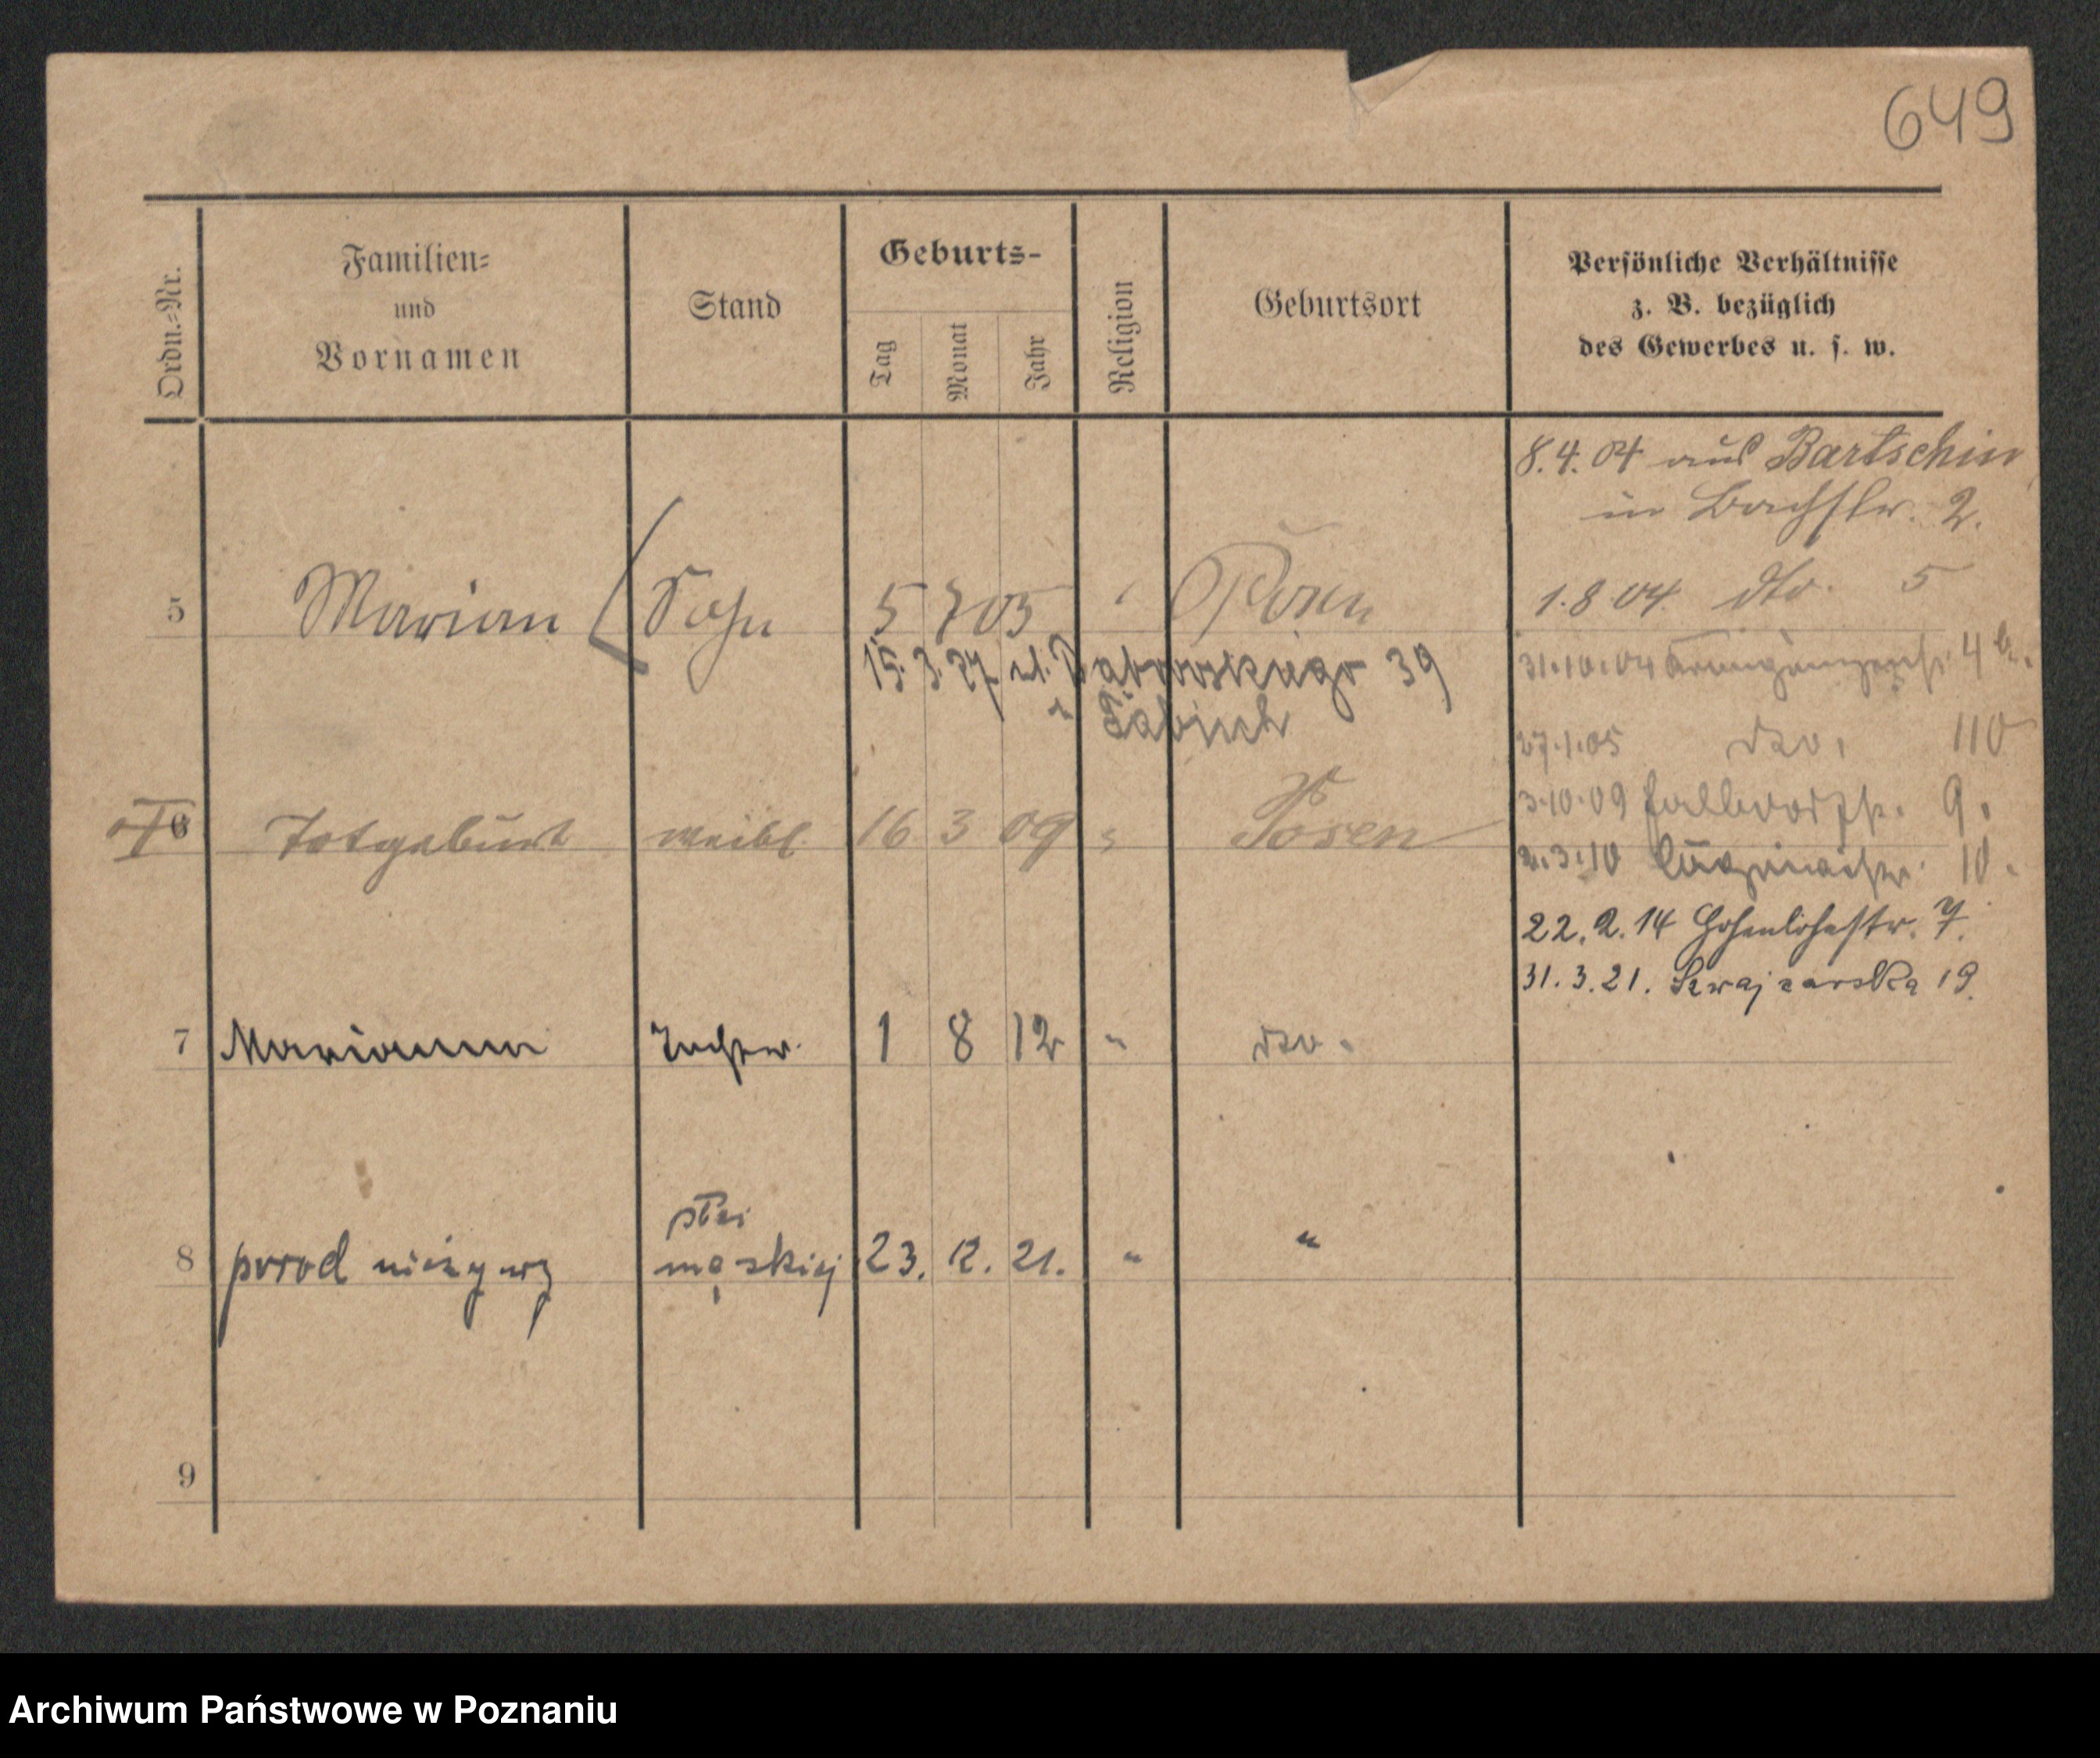 649
Ordn.=Nr.
Familien=
und
Vornamen
Stand
Geburts-
Tag
Monat
Jahr
Religion
Geburtsort
Persönliche Verhältnisse
z. B. bezüglich
des Gewerbes u. s. w.
8.4.04 aus Bartschin
in Bachstr. 2.
5 Marian Sohn 5 7 05 " Posen
1.8 04. dto. 5
15.3.27 ul. Dąbrowskiego 39
31.10.04 4
" Fabisch
27.1.05 dto. 110
6 Totgeburt weibl. 16 3 09 " Posen
3.10.09 9.
2.3.10 10.
22.2.14 Hohenlohestr. 7.
31.3.21. Szwajcarska 19.
7 Marianna Tochter. 1 8 12 " dto.
8 porod nieżywy płci
męskiej 23. 12. 21. " "
9
Archiwum Państwowe w Poznaniu